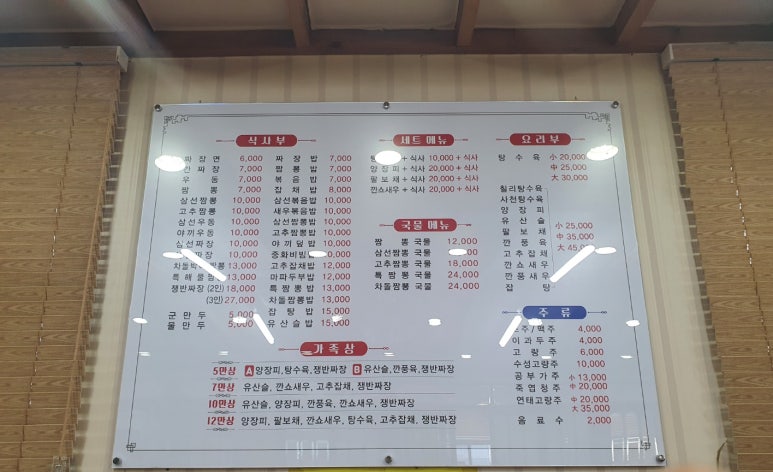 식사부
짜장면 6,000
짜장 7,000
우동 7,000
짬뽕 7,000
삼선짬뽕 10,000
고추짬뽕 10,000
삼선우동 10,000
야끼우동 10,000
삼선짜장 10,000
짜장 10,000
차돌박 짬뽕 13,000
특해물 짬뽕 13,000
쟁반짜장 (2인) 18,000
(3인) 27,000
군만두 5,000
물만두 5,000
짜장밥 7,000
짬뽕밥 7,000
볶음밥 7,000
잡채밥 8,000
삼선볶음밥 10,000
새우볶음밥 10,000
삼선짬뽕밥 10,000
야끼덮밥 10,000
중화비빔 10,000
고추잡채밥 12,000
마파두부밥 12,000
특짬뽕밥 13,000
차돌짬뽕밥 13,000
잡탕밥 15,000
유산슬밥 15,000
세트메뉴
탕 +식사 10,000+식사
양장피+식사 20,000+식사
팔보채+식사 20,000+식사
깐쇼새우+식사 20,000+식사
국물메뉴
짬뽕국물 12,000
삼선짬뽕국물 18,000
고추짬뽕국물 18,000
특짬뽕국물 24,000
차돌짬뽕국물 24,000
요리부
탕수육 小 20,000
中 25,000
大 30,000
칠리탕수육
사천탕수육
양장피
유산슬
팔보채
깐풍육
고추잡채
깐쇼새우
깐풍새우
잡탕
小 25,000
中 35,000
大 45,000
주류
소주/맥주 4,000
이과두주 4,000
고량주 6,000
수성고량주 10,000
공부가주 小 13,000
죽엽청주 中 20,000
연태고량주 中 20,000
大 35,000
음료수 2,000
가족상
5만상 A 양장피,탕수육,쟁반짜장 B 유산슬,깐풍육,쟁반짜장
7만상 유산슬,깐쇼새우,고추잡채,쟁반짜장
10만상 유산슬, 양장피, 깐풍육, 깐쇼새우, 쟁반짜장
12만상 양장피, 팔보채, 깐쇼새우, 탕수육, 고추잡채, 쟁반짜장